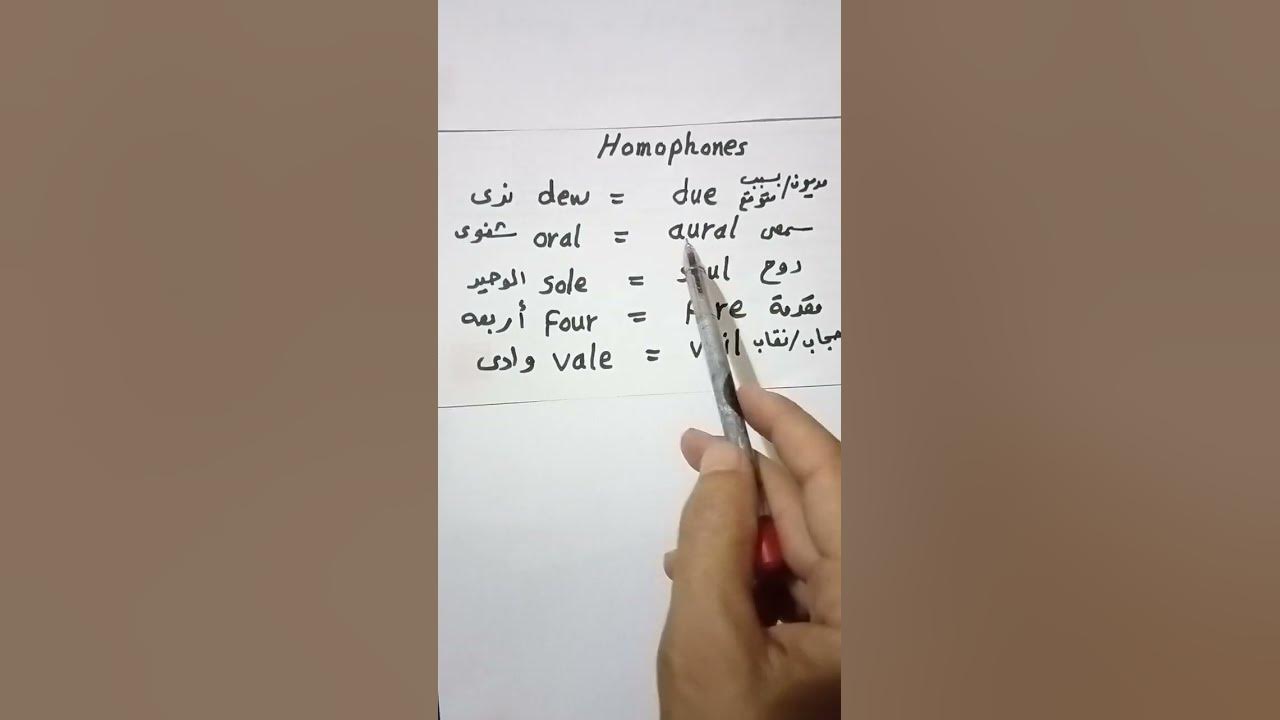 Homophones
ندى dew = due مديون/بسبب متوقع
شفوى oral = aural سمعى
الوحيد sole = روح
أربعه four = مقدمة
وادى vale = حجاب/نقاب